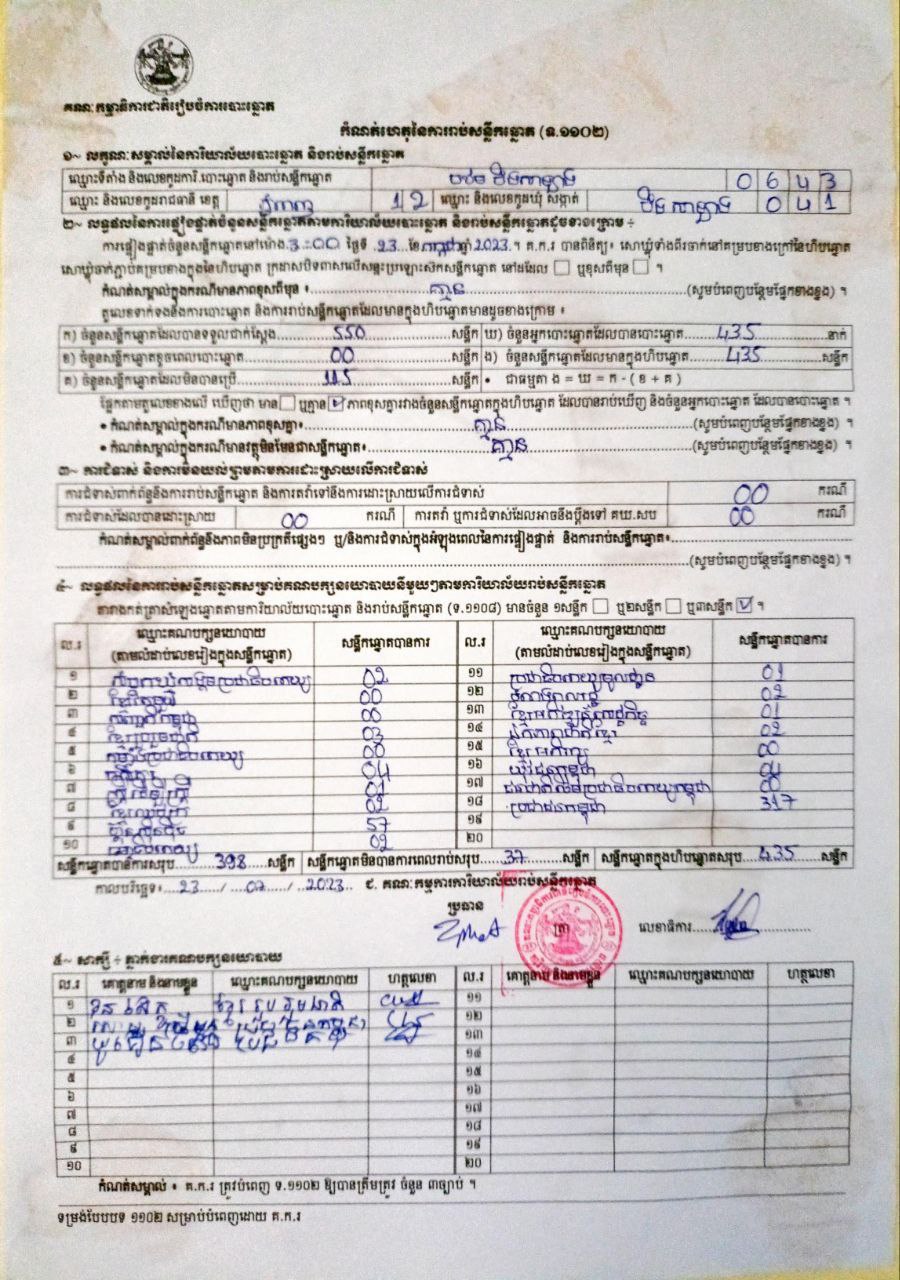 គណៈកម្មាធិការជាតិរៀបចំការបោះឆ្នោត
កំណត់ហេតុនៃការរាប់សន្លឹកឆ្នោត (ទ.១១០២)
១~ លក្ខណៈសម្គាល់នៃការិយាល័យបោះឆ្នោត និងរាប់សន្លឹកឆ្នោត
ឈ្មោះទីតាំង និងលេខកូដការិ.បោះឆ្នោត និងរាប់សន្លឹកឆ្នោត 0 6 4 3
ឈ្មោះ និងលេខកូដរាជធានី ខេត្ត ភ្នំពេញ 1 2 ឈ្មោះ និងលេខកូដឃុំ សង្កាត់ 0 4 1
២~ លទ្ធផលនៃការផ្ទៀងផ្ទាត់ចំនួនសន្លឹកឆ្នោតតាមការិយាល័យបោះឆ្នោត និងរាប់សន្លឹកឆ្នោតដូចខាងក្រោម ÷
ការផ្ទៀងផ្ទាត់ចំនួនសន្លឹកឆ្នោតនៅម៉ោង 3:00 ថ្ងៃទី 23 ខែ កក្កដា ឆ្នាំ 2023 ។ គ.ក.រ បានពិនិត្យ៖ សោឃ្លុំទាំងពីរចាក់នៅគម្របខាងក្រៅនៃហិបឆ្នោត
សោឃ្លុំចាក់ភ្ជាប់គម្របខាងក្នុងនៃហិបឆ្នោត ក្រដាសបិទពាសលើសន្ទះប្រឡោះសិកសន្លឹកឆ្នោត នៅដដែល ☐ ឬខុសពីមុន ☐ ។
កំណត់សម្គាល់ក្នុងករណីមានភាពខុសពីមុន ៖ គ្មាន (សូមបំពេញបន្ថែមផ្នែកខាងខ្នង) ។
តួលេខទាក់ទងនឹងការបោះឆ្នោត និងការរាប់សន្លឹកឆ្នោតដែលមានក្នុងហិបឆ្នោតមានដូចខាងក្រោម ៖
ក) ចំនួនសន្លឹកឆ្នោតដែលបានទទួលជាក់ស្តែង 550 សន្លឹក ឃ) ចំនួនអ្នកបោះឆ្នោតដែលបានបោះឆ្នោត 435 នាក់
ខ) ចំនួនសន្លឹកឆ្នោតខូចពេលបោះឆ្នោត 00 សន្លឹក ង) ចំនួនសន្លឹកឆ្នោតដែលមានក្នុងហិបឆ្នោត 435 សន្លឹក
គ) ចំនួនសន្លឹកឆ្នោតដែលមិនបានប្រើ 115 សន្លឹក • ជាធម្មតា ង = ឃ = ក - ( ខ + គ )
ផ្អែកតាមតួលេខខាងលើ ឃើញថា មាន ☐ ឬគ្មាន ☑ ភាពខុសគ្នារវាងចំនួនសន្លឹកឆ្នោតក្នុងហិបឆ្នោត ដែលបានរាប់ឃើញ និងចំនួនអ្នកបោះឆ្នោត ដែលបានបោះឆ្នោត ។
• កំណត់សម្គាល់ក្នុងករណីមានភាពខុសគ្នា៖ គ្មាន (សូមបំពេញបន្ថែមផ្នែកខាងខ្នង) ។
• កំណត់សម្គាល់ក្នុងករណីមានវត្ថុមិនមែនជាសន្លឹកឆ្នោត៖ គ្មាន (សូមបំពេញបន្ថែមផ្នែកខាងខ្នង) ។
៣~ ការជំទាស់ និងការមិនយល់ព្រមតាមការដោះស្រាយលើការជំទាស់
ការជំទាស់ពាក់ព័ន្ធនឹងការរាប់សន្លឹកឆ្នោត និងការតវ៉ាទៅនឹងការដោះស្រាយលើការជំទាស់ 00 ករណី
ការជំទាស់ដែលបានដោះស្រាយ 00 ករណី ការតវ៉ា ឬការជំទាស់ដែលអាចនឹងប្តឹងទៅ គឃ.សប 00 ករណី
កំណត់សម្គាល់ពាក់ព័ន្ធនឹងភាពមិនប្រក្រតីផ្សេងៗ ឬ/និងការជំទាស់ក្នុងអំឡុងពេលនៃការផ្ទៀងផ្ទាត់ និងការរាប់សន្លឹកឆ្នោត៖
(សូមបំពេញបន្ថែមផ្នែកខាងខ្នង) ។
៤~ លទ្ធផលនៃការរាប់សន្លឹកឆ្នោតសម្រាប់គណបក្សនយោបាយនីមួយៗតាមការិយាល័យរាប់សន្លឹកឆ្នោត
តារាងកត់ត្រាសំឡេងឆ្នោតតាមការិយាល័យបោះឆ្នោត និងរាប់សន្លឹកឆ្នោត (ទ.១១០៨) មានចំនួន ១សន្លឹក ☐ ឬ២សន្លឹក ☐ ឬ៣សន្លឹក ☑ ។
ល.រ ឈ្មោះគណបក្សនយោបាយ (តាមលំដាប់លេខរៀងក្នុងសន្លឹកឆ្នោត) សន្លឹកឆ្នោតបានការ ល.រ ឈ្មោះគណបក្សនយោបាយ (តាមលំដាប់លេខរៀងក្នុងសន្លឹកឆ្នោត) សន្លឹកឆ្នោតបានការ
១ 02 ១១ 01
២ 00 ១២ 02
៣ 00 ១៣ 01
៤ ខ្មែររួបរួមជាតិ 03 ១៤ 02
៥ 00 ១៥ 00
៦ 04 ១៦ 04
៧ 01 ១៧ 00
៨ 02 ១៨ ប្រជាជនកម្ពុជា 317
៩ ហ៊្វុនស៊ិនប៉ិច 57 ១៩
១០ 02 ២០
សន្លឹកឆ្នោតបានការសរុប 398 សន្លឹក សន្លឹកឆ្នោតមិនបានការពេលរាប់សរុប 37 សន្លឹក សន្លឹកឆ្នោតក្នុងហិបឆ្នោតសរុប 435 សន្លឹក
កាលបរិច្ឆេទ៖ 23 / 07 / 2023 ៩. គណៈកម្មការការិយាល័យរាប់សន្លឹកឆ្នោត
ប្រធាន ត្រា លេខាធិការ
៥~ សាក្សី ÷ ភ្នាក់ងារគណបក្សនយោបាយ
ល.រ គោត្តនាម និងនាមខ្លួន ឈ្មោះគណបក្សនយោបាយ ហត្ថលេខា ល.រ គោត្តនាម និងនាមខ្លួន ឈ្មោះគណបក្សនយោបាយ ហត្ថលេខា
១ ខ្មែររួបរួមជាតិ ១១
២ ១២
៣ ១៣
៤ ១៤
៥ ១៥
៦ ១៦
៧ ១៧
៨ ១៨
៩ ១៩
១០ ២០
កំណត់សម្គាល់ ៖ គ.ក.រ ត្រូវបំពេញ ទ.១១០២ ឱ្យបានត្រឹមត្រូវ ចំនួន ៣ច្បាប់ ។
ទម្រង់បែបបទ ១១០២ សម្រាប់បំពេញដោយ គ.ក.រ